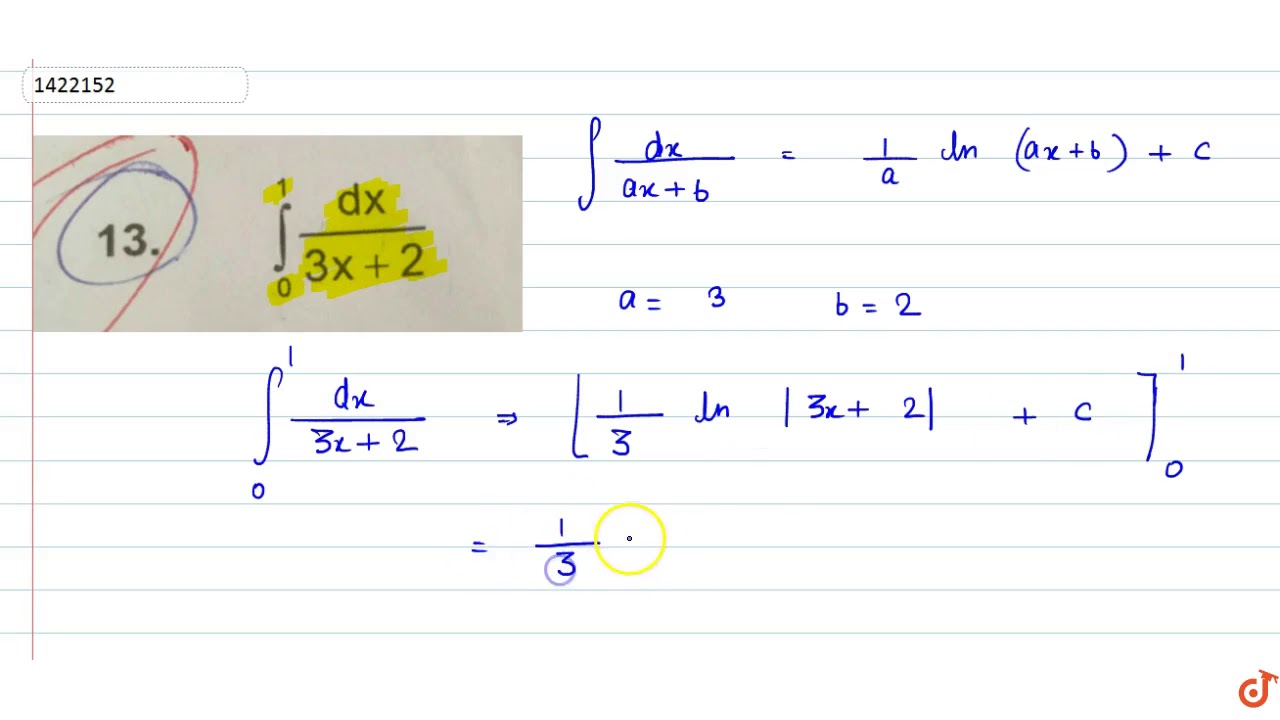 1422152
13. ∫₀¹ dx / (3x + 2)
∫ dx / (ax + b) = 1/a ln (ax + b) + c
a = 3 b = 2
∫₀¹ dx / (3x + 2) ⇒ [ 1/3 ln |3x + 2| + c ]₀¹
= 1/3